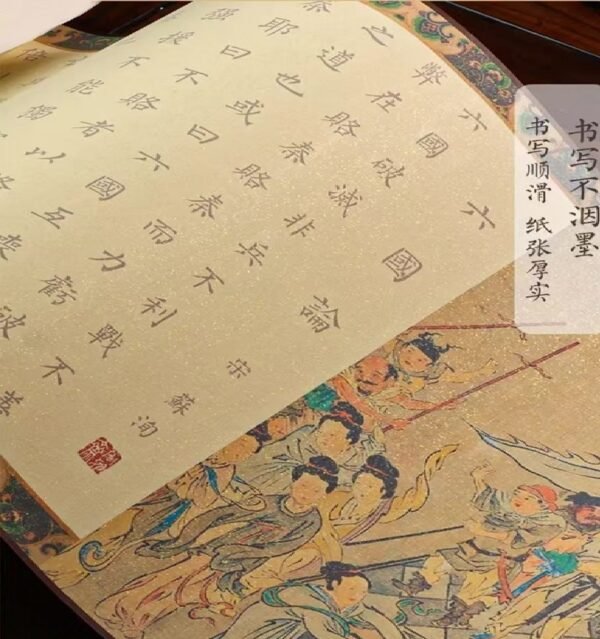 书写不洇墨
书写顺滑 纸张厚实
六國論
宋 蘇洵
六國破滅非兵不利戰不善
弊在賂秦賂秦而力虧破
之道也或曰六國互喪
秦耶曰不賂者以
強援不能獨